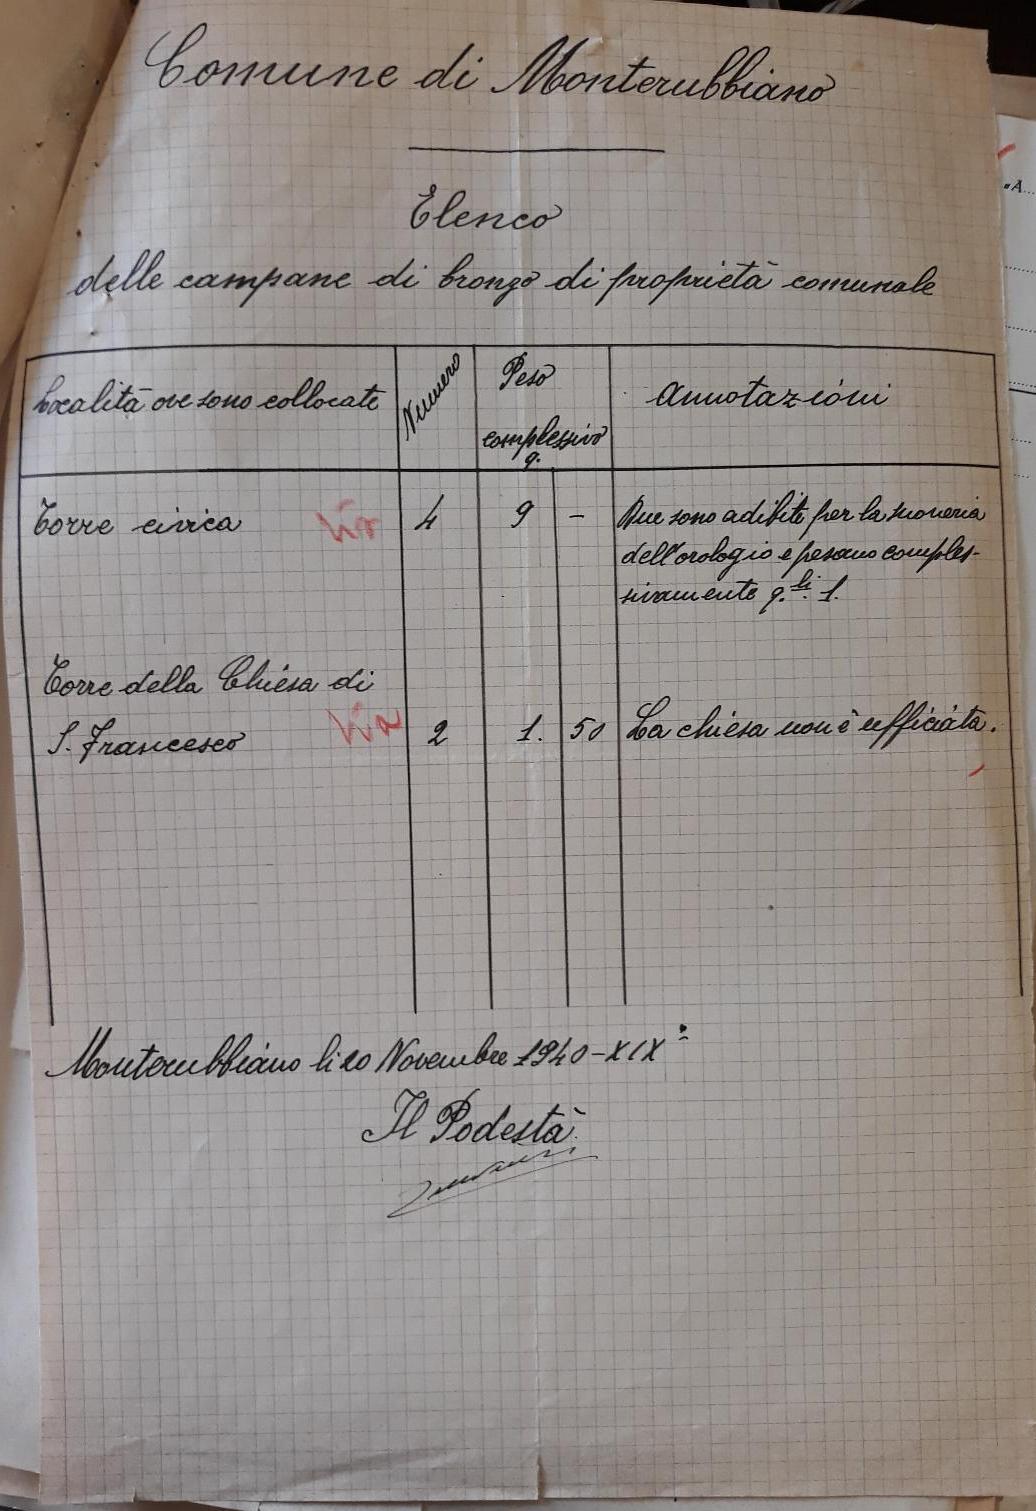 Comune di Monterubbiano
Elenco
delle campane di bronzo di proprietà comunale
Località ove sono collocate
Numero
Peso
complessivo
q.
Annotazioni
Torre civica
4
9
-
Due sono adibite per la suoneria
dell'orologio e pesano comples-
sivamente q.li 1.
Torre della Chiesa di
S. Francesco
2
1.
50
La chiesa non è ufficiata.
Monterubbiano li 20 Novembre 1940-XIX°
Il Podestà
«A...